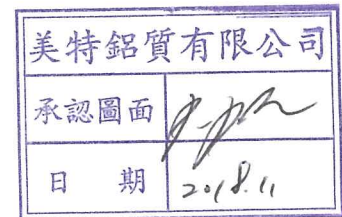 美特鋁質有限公司
承認圖面
日期 2018.11